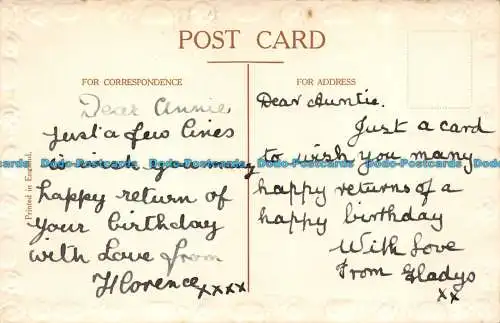 POST CARD
FOR CORRESPONDENCE
Dear Annie
Just a few lines
to wish you many
happy return of
your birthday
with Love from
Florence xxxx
FOR ADDRESS
Dear Auntie.
Just a card
to wish you many
happy returns of a
happy birthday
With Love
From Gladys
xx
Printed in England.
Dado-Postcards Dado-Postcards Dado-Postcards